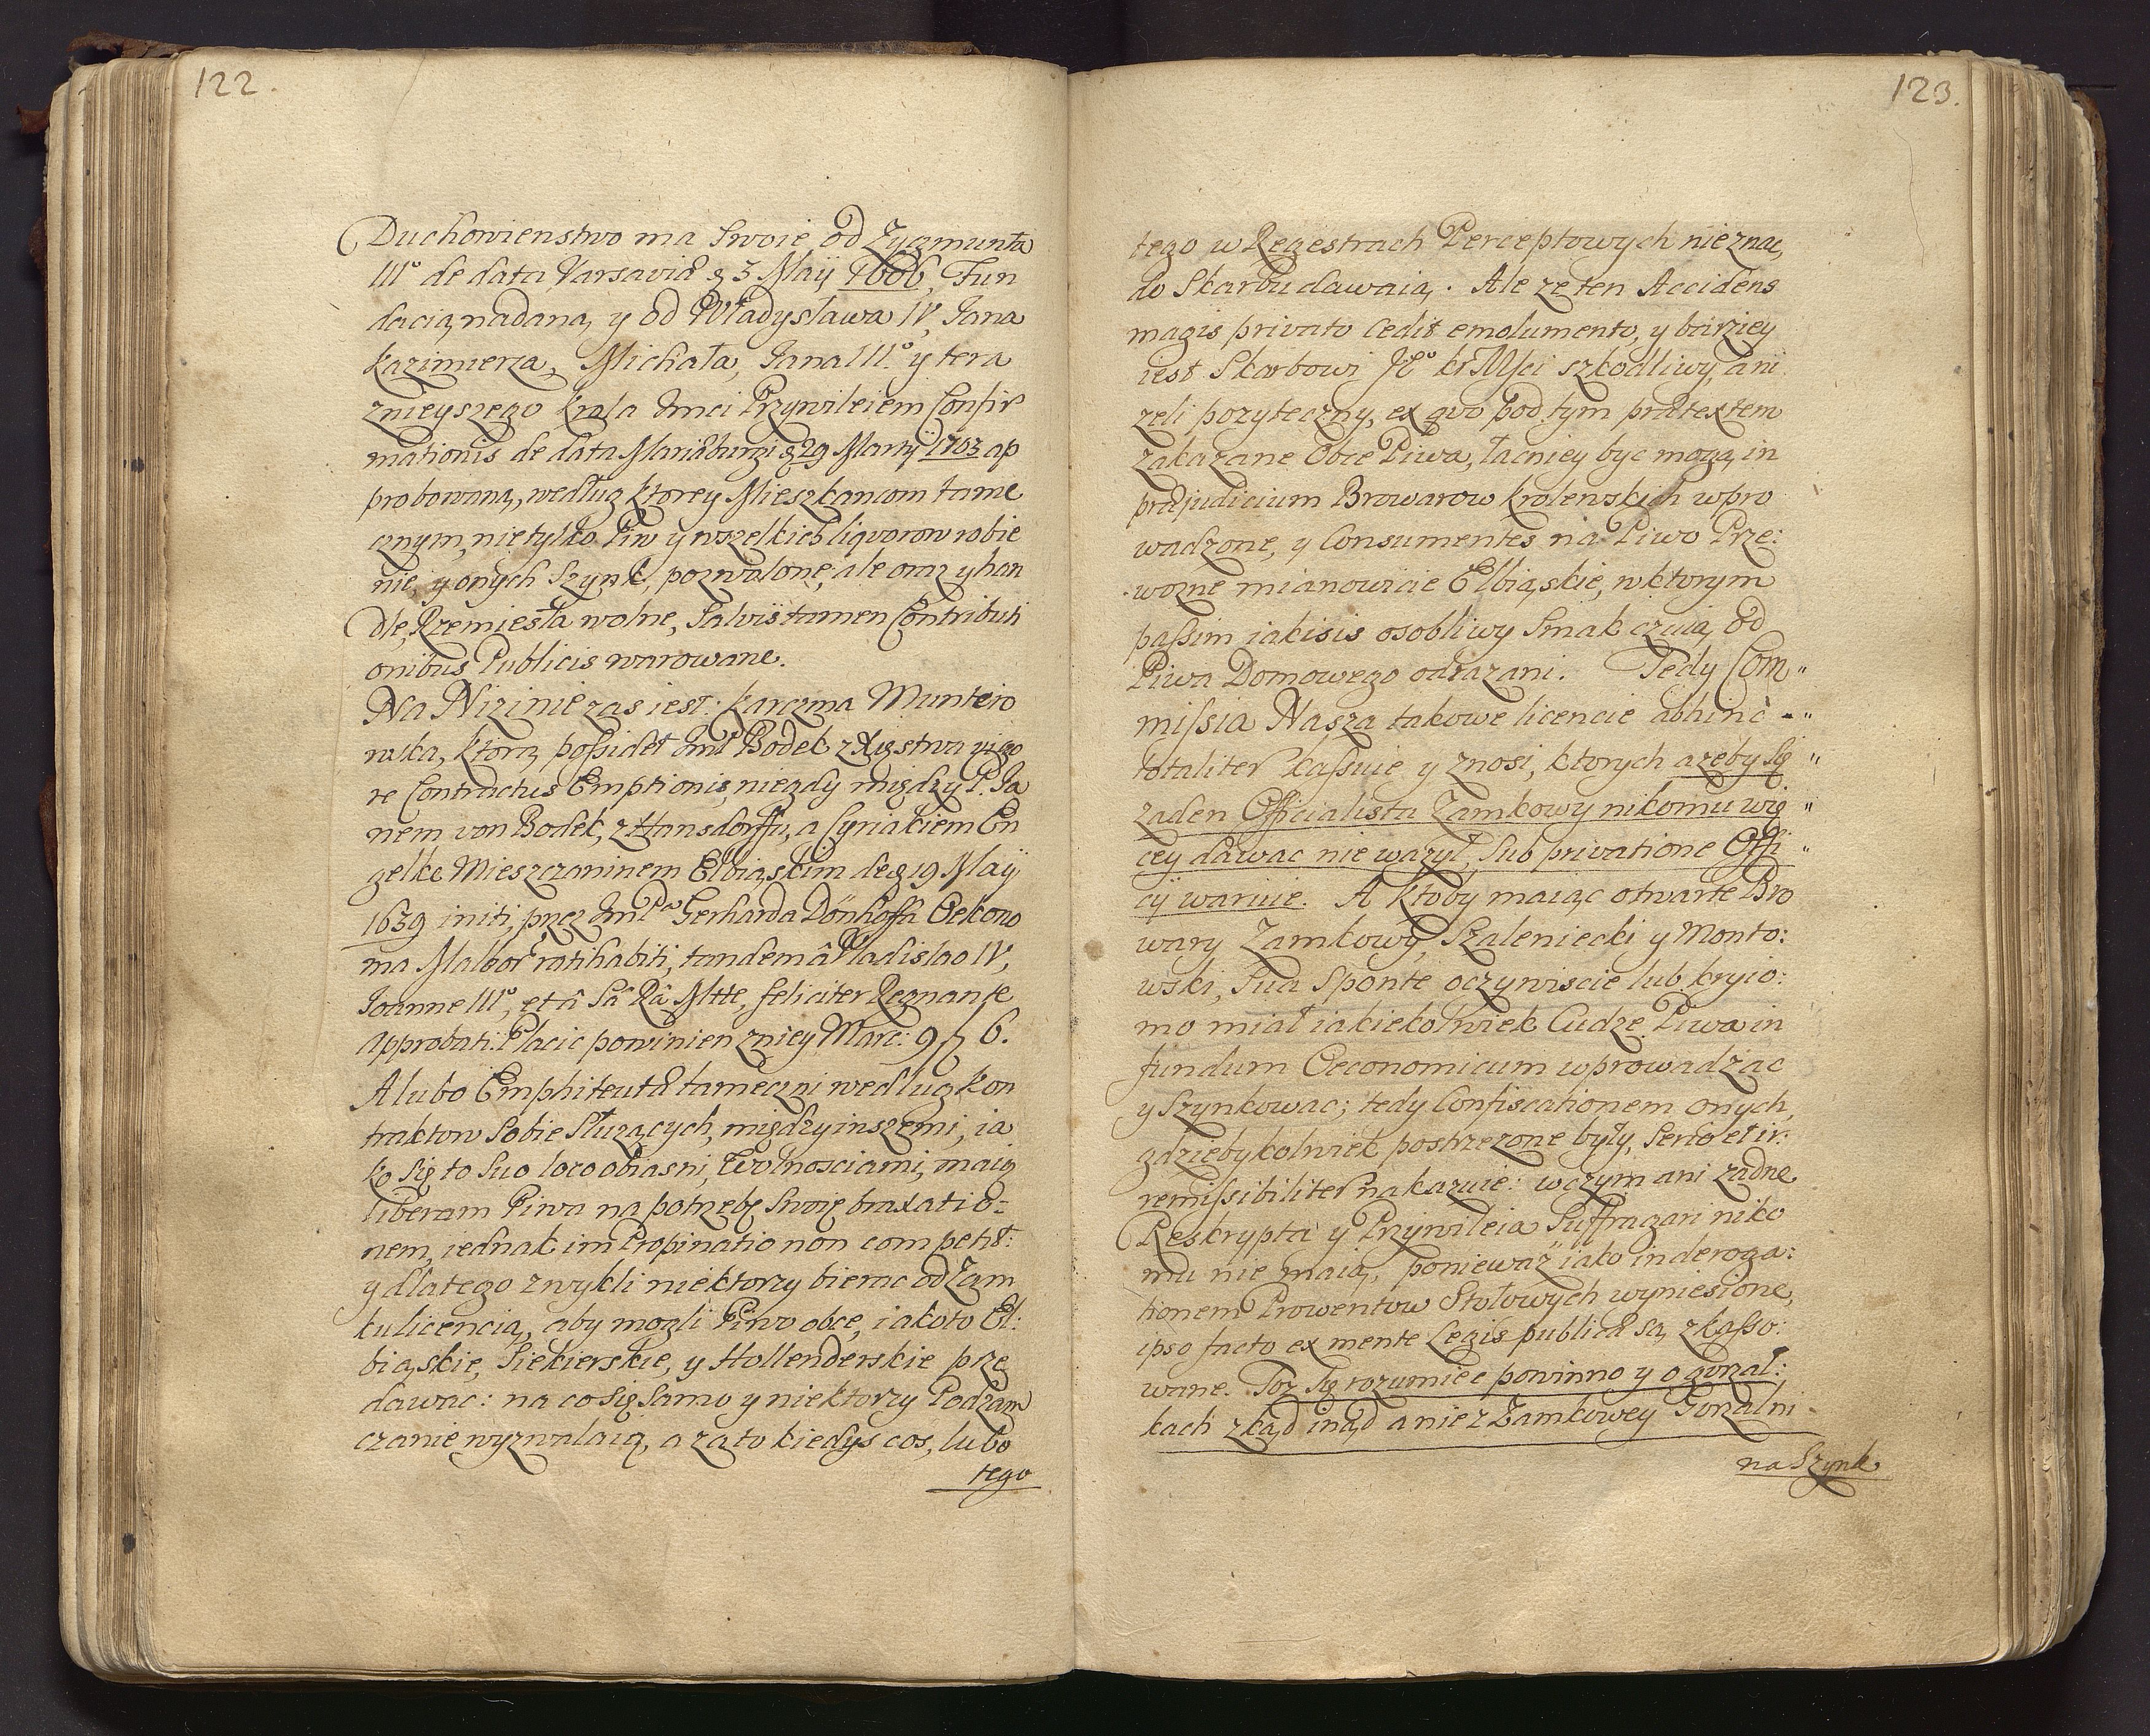 122.
Duchowienstwo ma Swoie od Zygmunta
III° de data Varsaviæ d 3 Maij 1606, Fun
dacią nadaną y od Władysława IV, Jana
Kazimierza, Michała, Jana III.° y tera
znieyszego Krola Jmci Przywileiem Confir
mationis de data Mariæburgi d 29 Martij 1703 ap
probowaną, według ktorey Mieszkancom tame
cznym, nie tylko Piw y wszelkich liqvorow robie
nie, y onych Szynk, pozwolone, ale oraz y han
dle, Rzemiesła wolne, Salvis tamen Contributi
onibus Publicis warowane.
Na Nizinie zas iest: karczma Munteio
wska, ktorą possidet Jmć Bodek z Xięstwa vigo
re Contractus Emptionis niegdy między P. Ja
nem von Bodek, z Hansdorffu, a Cyriakiem En
gelke Mieszczaninem Elbiąskim de d 19 Maij
1639 initi, przez JmPa Gerharda Dönhoffa Oekono
ma Malbor ratihabiti, tandem â Vladislao IV,
Joanne III°, et â Sâ Râ Mtte, feliciter Regnante
approbati. Płacic powinien z niey Marc: 9 ß 6.
A lubo Emphiteutæ tameczni według kon
traktow Sobie Służących, między inszemi, ia
ko się to Suo loco obiasni, Wolnosciami, maią
liberam Piwa na potrzebę Swoię braxatio=
nem, iednak im Propinatio non competit:
y dlatego zwykli niektorzy bierac od Zam
ku licencią, aby mogli Piwo obce, iakoto El:
biąskie, Siekierskie, y Hollenderskie prze
dawac: na co się Samo y niektorzy Podzam
czanie wyzwalaią, a za to kiedys cos, lubo
tego
123.
tego w Regestrach Perceptowych nie znac,
do Skarbu dawaią. Ale ze ten Accidens
magis privato cedit emolumento, y barziey
iest Skarbowi J° Kr Msci szkodliwy, ani
zeli pozyteczny, ex qvo pod tym prætextem
zakazane Obce Piwa, łacniey byc mogą in
præjudicium Browarow Krolewskich wpro
wadzone, y Consumentes na Piwo Prze:
wozne mianowicie Elbiąskie, w ktorym
passim iakisis osobliwy Smak czuią, od
Piwa Domowego odrazani. Tedy Com„
missia Nasza takowe licencie abhinc -„
totaliter kassuie y znosi, ktorych azeby Się „
zaden Officialista Zamkowy nikomu wię „
cey dawac nie wazył, Sub privatione Offi „
cij waruie. A ktoby maiąc otwarte Bro
wary Zamkowy, Szaleniecki y Monto:
wski, Sua Sponte oczywiscie lub kryio:
mo miał iakiekolwiek Cudze Piwa in
fundum Oeconomicum wprowadzac
y Szynkowac; tedy Confiscationem onych,
gdzieby kolwiek postrzezone były, Serio et ir:
remissibiliter nakazuie: w czym ani zadne
Reskrypta y Przywileia Suffragari niko
mu nie maią, poniewaz iako in deroga:
tionem Prowentow Stołowych wyniesione,
ipso facto ex mente Legis publicæ są zkasso:
wane. Toz Się rozumiec powinno y o gorzał:
kach z kąd inąd a nie z Zamkowey Gorzalni
na Szynk